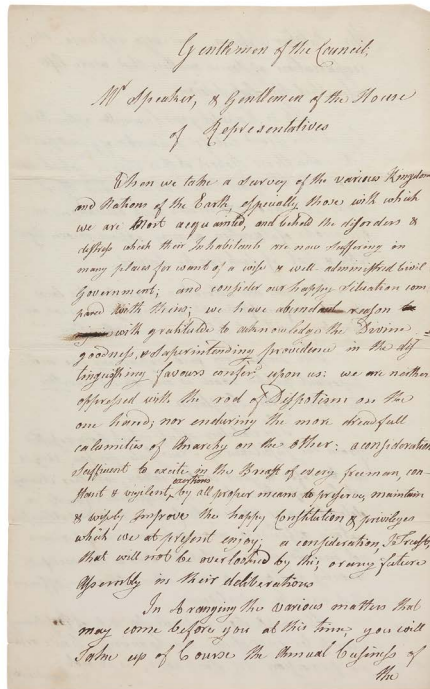 Gentlemen of the Council,
Mr Speaker, & Gentlemen of the House
of Representatives
When we take a Survey of the various Kingdoms
and Nations of the Earth, especially those with which
we are most acquainted, and behold the disorders &
distress which their Inhabitants are now suffering in
many places for want of a wise & well administred Civil
Government; and consider our happy Situation com
pared with theirs; we have abundant reason to
with gratitude to acknowledge the Divine
goodness, & Superintending providence in the dis-
tinguishing favours confer'd upon us: we are neither
oppressed with the rod of Despotism on the
one hand; nor enduring the more dreadfull
calamities of Anarchy on the other: a consideration
sufficient to excite in the Breast of every freeman, con-
stant & vigilent exertions by all proper means to preserve, maintain
& wisely Improve the happy Constitution & privileges
which we at present enjoy; a consideration, I Trust,
that will not be overlooked by this, or any future
Assembly in their deliberations
In Aranging the various matters that
may come before you at this time, you will
Take up of Course the Annual business of
the